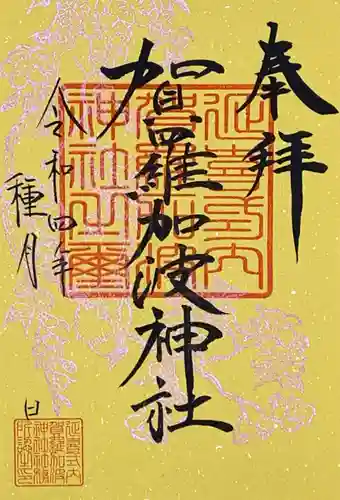 奉拝
賀羅加波神社
令和四年
種月
日
延喜式内
賀羅加波
神社之璽
延喜式内
賀羅加波
神社社務
所認之印